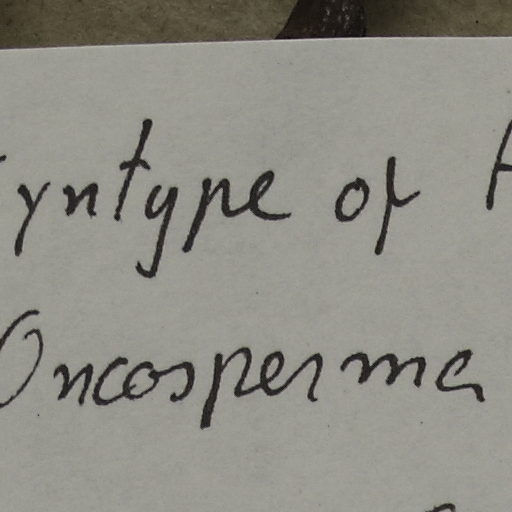 yntype of
Oncosperma